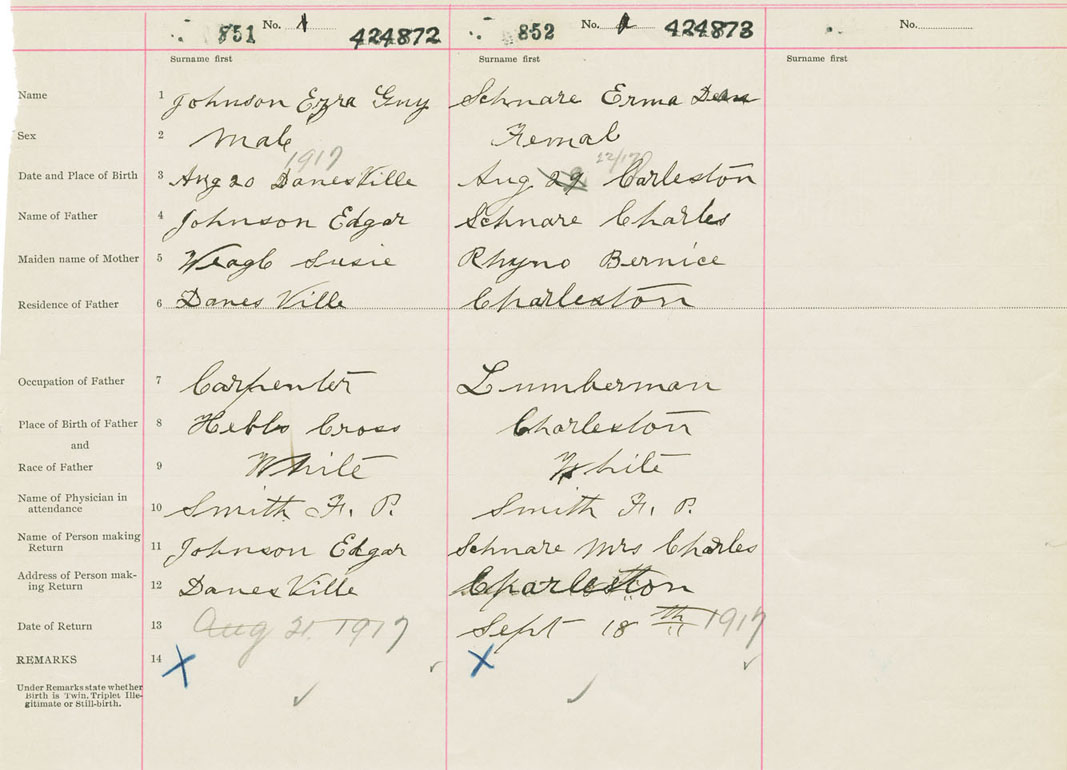 851 No. 1 424872 852 No. 424873 No.
Surname first Surname first Surname first
Name 1 Johnson Ezra Guy Schnare Erma Dean
Sex 2 Male Female
1917 22/17
Date and Place of Birth 3 Aug 20 DanesVille Aug 29 Carleston
Name of Father 4 Johnson Edgar Schnare Charles
Maiden name of Mother 5 Weagle Susie Rhyno Bernice
Residence of Father 6 Danes Ville Charleston
Occupation of Father 7 Carpenter Lumberman
Place of Birth of Father 8 Hebbs Cross Charleston
and
Race of Father 9 White White
Name of Physician in
attendance 10 Smith F. P. Smith F. P.
Name of Person making
Return 11 Johnson Edgar Schnare Mrs Charles
Address of Person mak-
ing Return 12 DanesVille Charleston
Date of Return 13 Aug 21 1917 Sept 18th 1917
REMARKS 14 X X
Under Remarks state whether
Birth is Twin, Triplet Ille-
gitimate or Still-birth.